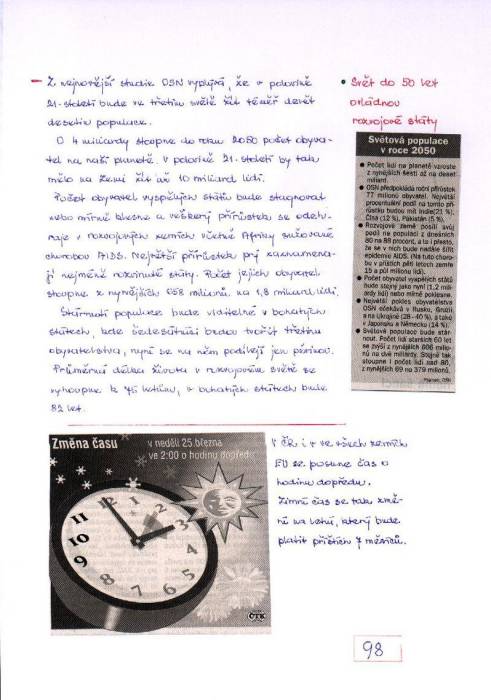 – Z nejnovější studie OSN vyplývá, že v polovině
21. století bude ve třetím světě žít téměř devět
desetin populace.
O 4 miliardy stoupne do roku 2050 počet obyva-
tel na naší planetě. V polovině 21. století by tak
mělo na Zemi žít už 10 miliard lidí.
Počet obyvatel vyspělých států bude stagnovat
nebo mírně klesne a veškerý přírůstek se odeh-
raje v rozvojových zemích včetně Afriky sužované
chorobou AIDS. Největší přírůstek prý zaznamena-
jí nejméně rozvinuté státy. Počet jejich obyvatel
stoupne z nynějších 658 milionů na 1,8 miliard lidí.
Stárnutí populace bude viditelné v bohatých
státech, kde šedesátníci budou tvořit třetinu
obyvatelstva, nyní se na něm podílejí jen pětinou.
Průměrná délka života v rozvojovém světě se
vyhoupne k 75 letům, v bohatých státech bude
82 let.
• Svět do 50 let
ovládnou
rozvojové státy
Světová populace
v roce 2050
● Počet lidí na planetě vzroste
z nynějších šesti až na deset
miliard.
● OSN předpokládá roční přírůstek
77 milionů obyvatel. Největší
procentuální podíl na tomto pří-
růstku budou mít Indie (21 %),
Čína (12 %), Pákistán (5 %).
● Rozvojové země posílí svůj
podíl na populaci z dnešních
80 na 88 procent, a to i přesto,
že se v nich bude nadále šířit
epidemie AIDS. (Na tuto choro-
bu v příštích pěti letech zemře
15 a půl milionu lidí).
● Počet obyvatel vyspělých států
bude stejný jako nyní (1,2 mili-
ardy lidí) nebo mírně poklesne.
● Největší pokles obyvatelstva
OSN očekává v Rusku, Gruzii
a na Ukrajině (28 - 40 %), a také
v Japonsku a Německu (14 %).
● Světová populace bude stár-
nout. Počet lidí starších 60 let
se zvýší z nynějších 606 milio-
nů na dvě miliardy. Stejně tak
stoupne i počet lidí nad 80,
z nynějších 69 na 379 milionů.
Změna času
v neděli 25. března
ve 2:00 o hodinu dopředu
11 12 1
10 2
9 3
8 4
7 6 5
ČTK
V ČR i v ve všech zemích
EU se posune čas o
hodinu dopředu.
Zimní čas se tak změ-
ní na letní, který bude
platit příštích 7 měsíců.
98